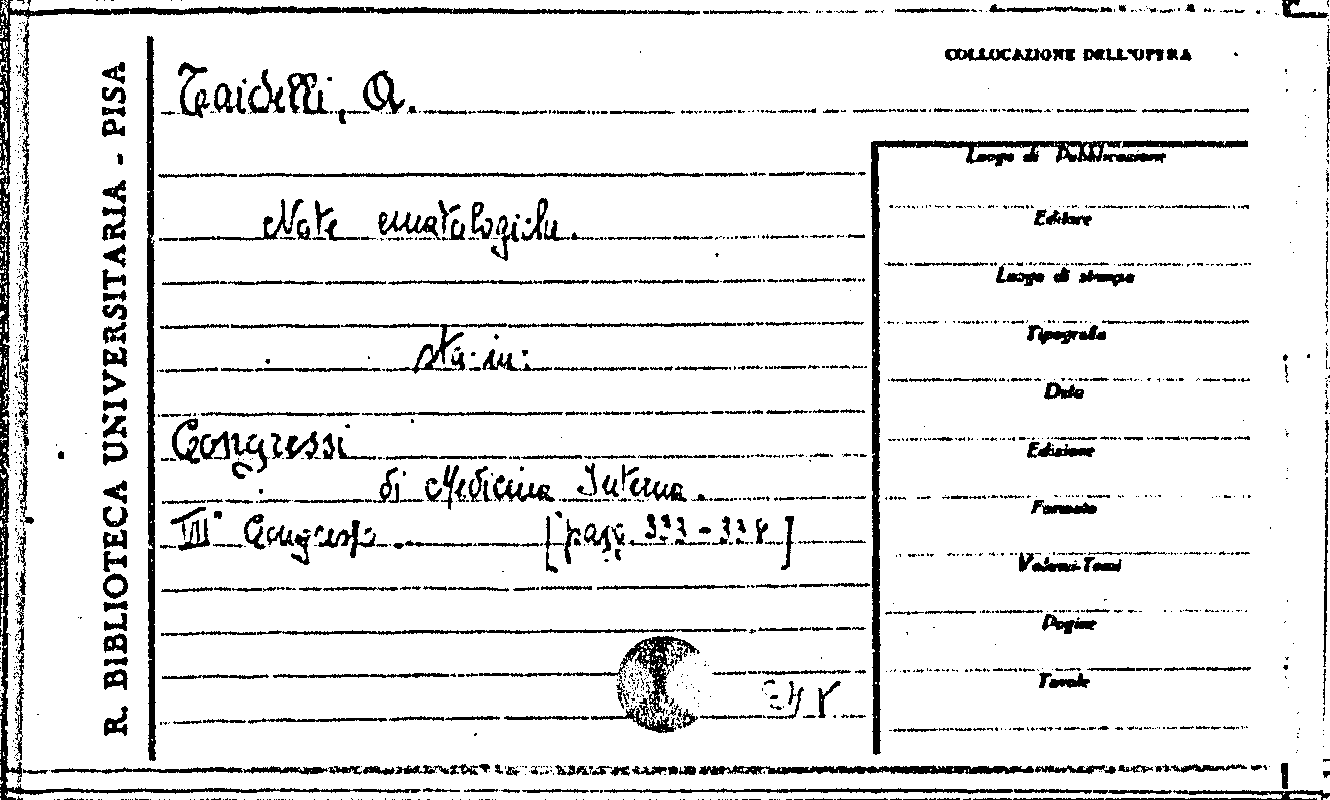 R. BIBLIOTECA UNIVERSITARIA - PISA
COLLOCAZIONE DELL'OPERA
Taidelli, A.
Note ematologiche.
sta in:
Congressi
di Medicina Interna.
VII° Congresso ... [pagg. 333 - 338]
Luogo di Pubblicazione
Editore
Luogo di stampa
Tipografia
Data
Edizione
Formato
Volumi-Tomi
Pagine
Tavole